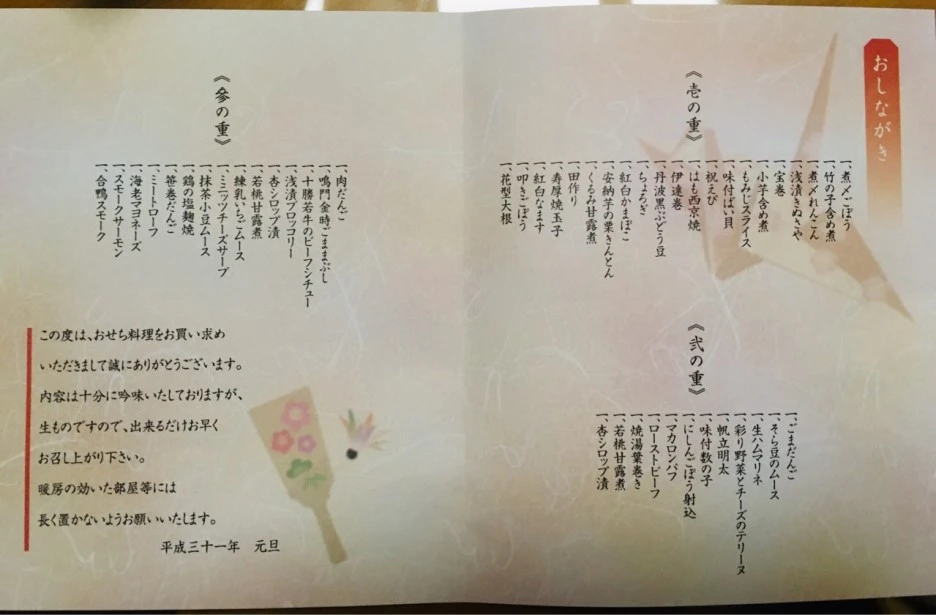 おしながき
《壱の重》
一、煮〆ごぼう
一、竹の子含め煮
一、煮〆れんこん
一、浅漬きぬさや
一、宝巻
一、小芋含め煮
一、もみじスライス
一、味付ばい貝
一、祝えび
一、はも西京焼
一、伊達巻
一、丹波黒ぶどう豆
一、ちょろぎ
一、紅白かまぼこ
一、安納芋の栗きんとん
一、くるみ甘露煮
一、田作り
一、寿厚焼玉子
一、紅白なます
一、叩きごぼう
一、花型大根
《弐の重》
一、ごまだんご
一、そら豆のムース
一、生ハムマリネ
一、彩り野菜とチーズのテリーヌ
一、帆立明太
一、味付数の子
一、にしんごぼう射込
一、マカロンパフ
一、ローストビーフ
一、焼湯葉巻き
一、若桃甘露煮
一、杏シロップ漬
《参の重》
一、肉だんご
一、鳴門金時ごままぶし
一、十勝若牛のビーフシチュー
一、浅漬ブロッコリー
一、杏シロップ漬
一、若桃甘露煮
一、練乳いちごムース
一、ミニッツチーズサーブ
一、抹茶小豆ムース
一、鶏の塩麹焼
一、笹巻だんご
一、ミートローフ
一、海老マヨネーズ
一、スモークサーモン
一、合鴨スモーク
この度は、おせち料理をお買い求め
いただきまして誠にありがとうございます。
内容は十分に吟味いたしておりますが、
生ものですので、出来るだけお早く
お召し上がり下さい。
暖房の効いた部屋等には
長く置かないようお願いいたします。
平成三十一年　元旦